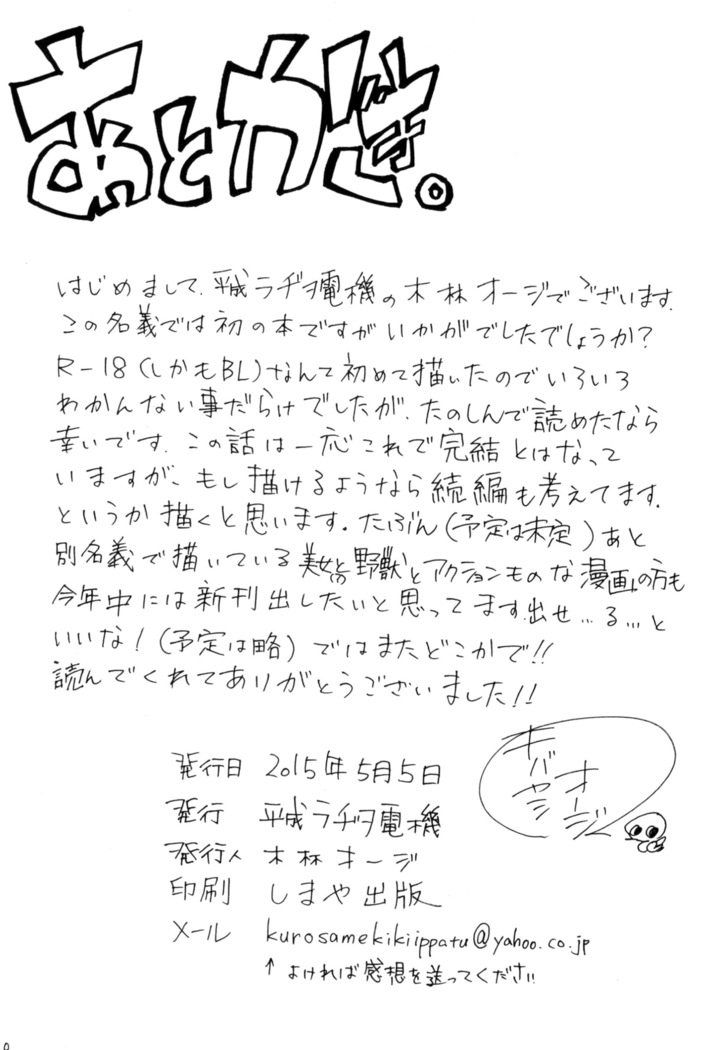 あとがき。
はじめまして、平成ラヂヲ電機の木林オージでございます。
この名義では初の本ですがいかがでしたでしょうか?
R-18(しかもBL)なんて初めて描いたのでいろいろ
わかんない事だらけでしたが、たのしんで読めたなら
幸いです。この話は一応これで完結とはなって
いますが、もし描けるようなら続編も考えてます。
というか描くと思います。たぶん(予定は未定)あと
別名義で描いている美女と野獣とアクションものな漫画の方も
今年中には新刊出したいと思ってます。出せ…る…と
いいな!(予定は略)ではまたどこかで!!
読んでくれてありがとうございました!!
キバヤシ
オージ
発行日 2015年5月5日
発行 平成ラヂヲ電機
発行人 木林オージ
印刷 しまや出版
メール kurosamekikiippatu@yahoo.co.jp
↑よければ感想を送ってください